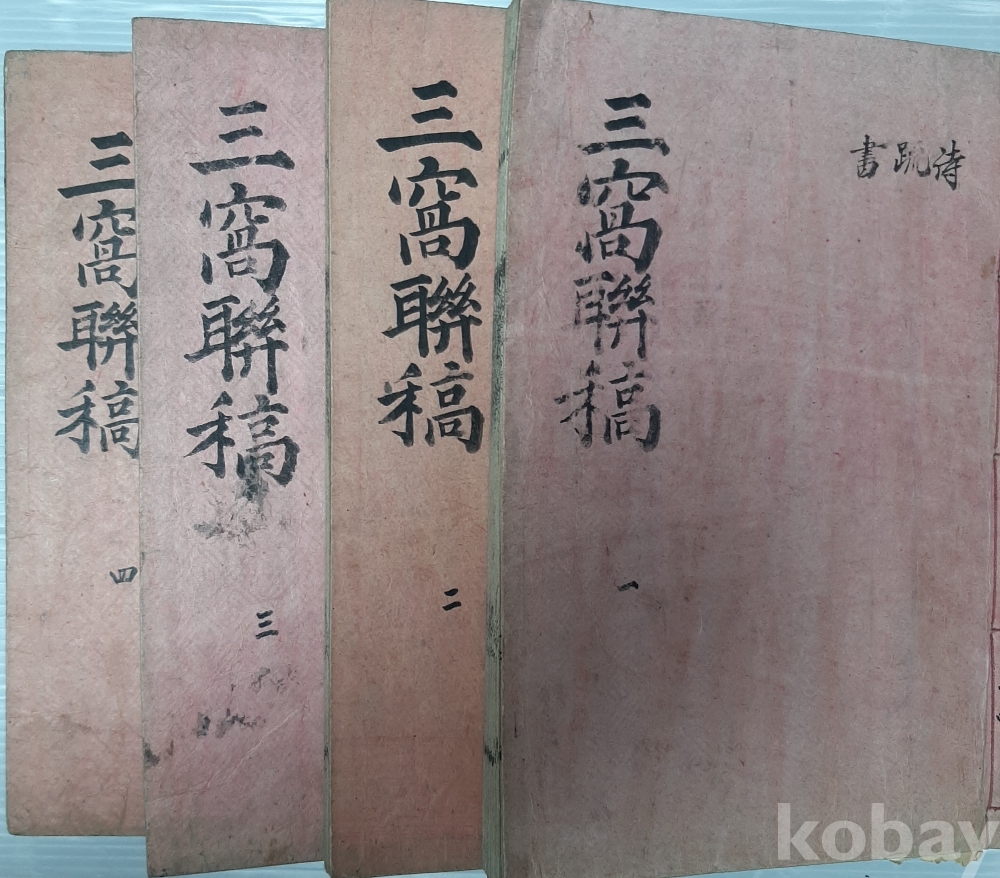 詩疏書
三窩聯稿
一
三窩聯稿
二
三窩聯稿
三
三窩聯稿
四
kobay